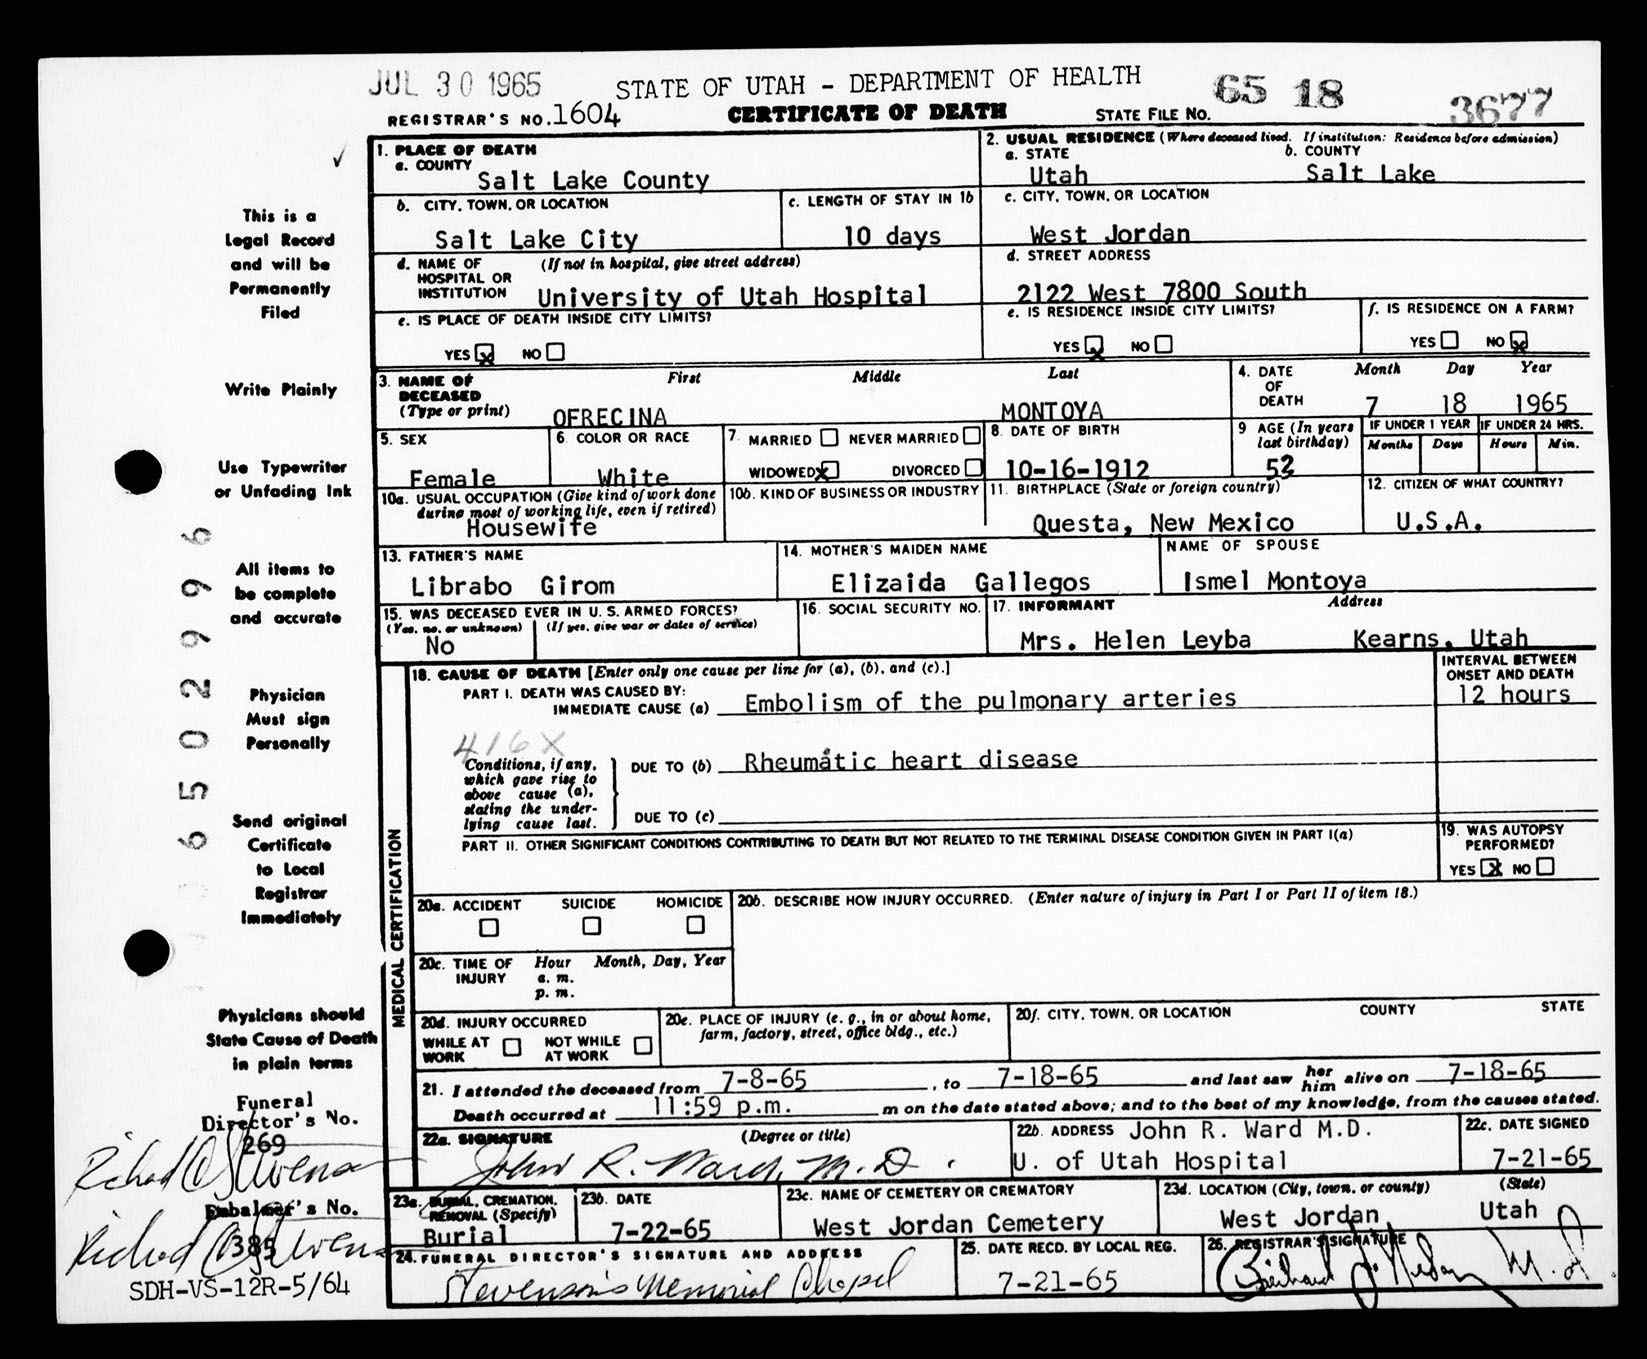 JUL 30 1965
STATE OF UTAH - DEPARTMENT OF HEALTH
65 18 3677
REGISTRAR'S NO. 1604
CERTIFICATE OF DEATH
STATE FILE NO.
1. PLACE OF DEATH
a. COUNTY
Salt Lake County
2. USUAL RESIDENCE (Where deceased lived. If institution: Residence before admission)
a. STATE
Utah
b. COUNTY
Salt Lake
b. CITY, TOWN, OR LOCATION
Salt Lake City
c. LENGTH OF STAY IN 1b
10 days
c. CITY, TOWN, OR LOCATION
West Jordan
d. NAME OF HOSPITAL OR INSTITUTION (If not in hospital, give street address)
University of Utah Hospital
d. STREET ADDRESS
2122 West 7800 South
e. IS PLACE OF DEATH INSIDE CITY LIMITS?
YES X NO
e. IS RESIDENCE INSIDE CITY LIMITS?
YES X NO
f. IS RESIDENCE ON A FARM?
YES NO X
3. NAME OF DECEASED (Type or print)
First Middle Last
OFRECINA MONTOYA
4. DATE OF DEATH
Month Day Year
7 18 1965
5. SEX
Female
6. COLOR OR RACE
White
7. MARRIED NEVER MARRIED
WIDOWED X DIVORCED
8. DATE OF BIRTH
10-16-1912
9 AGE (In years last birthday)
IF UNDER 1 YEAR
Months Days
IF UNDER 24 HRS.
Hours Min.
10a. USUAL OCCUPATION (Give kind of work done during most of working life, even if retired)
Housewife
10b. KIND OF BUSINESS OR INDUSTRY
11. BIRTHPLACE (State or foreign country)
Questa, New Mexico
12. CITIZEN OF WHAT COUNTRY?
U.S.A.
13. FATHER'S NAME
Librabo Girom
14. MOTHER'S MAIDEN NAME
Elizaida Gallegos
NAME OF SPOUSE
Ismel Montoya
15. WAS DECEASED EVER IN U.S. ARMED FORCES?
(Yes, no, or unknown) (If yes, give war or dates of service)
No
16. SOCIAL SECURITY NO.
17. INFORMANT Address
Mrs. Helen Leyba Kearns, Utah
MEDICAL CERTIFICATION
18. CAUSE OF DEATH [Enter only one cause per line for (a), (b), and (c).]
INTERVAL BETWEEN ONSET AND DEATH
PART I. DEATH WAS CAUSED BY:
IMMEDIATE CAUSE (a) Embolism of the pulmonary arteries
12 hours
416X
Conditions, if any, which gave rise to above cause (a), stating the underlying cause last.
DUE TO (b) Rheumatic heart disease
DUE TO (c)
PART II. OTHER SIGNIFICANT CONDITIONS CONTRIBUTING TO DEATH BUT NOT RELATED TO THE TERMINAL DISEASE CONDITION GIVEN IN PART I(a)
19. WAS AUTOPSY PERFORMED?
YES X NO
20a. ACCIDENT SUICIDE HOMICIDE
20b. DESCRIBE HOW INJURY OCCURRED. (Enter nature of injury in Part I or Part II of item 18.)
20c. TIME OF INJURY
Hour Month, Day, Year
a. m.
p. m.
20d. INJURY OCCURRED
WHILE AT WORK NOT WHILE AT WORK
20e. PLACE OF INJURY (e. g., in or about home, farm, factory, street, office bldg., etc.)
20f. CITY, TOWN, OR LOCATION COUNTY STATE
21. I attended the deceased from 7-8-65, to 7-18-65 and last saw her him alive on 7-18-65
Death occurred at 11:59 p.m. m on the date stated above; and to the best of my knowledge, from the causes stated.
22a. SIGNATURE (Degree or title)
John R. Ward, M.D.
22b. ADDRESS John R. Ward M.D.
U. of Utah Hospital
22c. DATE SIGNED
7-21-65
23a. BURIAL, CREMATION, REMOVAL (Specify)
Burial
23b. DATE
7-22-65
23c. NAME OF CEMETERY OR CREMATORY
West Jordan Cemetery
23d. LOCATION (City, town, or county) (State)
West Jordan Utah
24. FUNERAL DIRECTOR'S SIGNATURE AND ADDRESS
Stevenson's Memorial Chapel
25. DATE RECD. BY LOCAL REG.
7-21-65
26. REGISTRAR'S SIGNATURE
M.D.
This is a
Legal Record
and will be
Permanently
Filed
Write Plainly
Use Typewriter
or Unfading Ink
All items to
be complete
and accurate
Physician
Must sign
Personally
Send original
Certificate
to Local
Registrar
Immediately
Physicians should
State Cause of Death
in plain terms
Funeral
Director's No.
269
Embalmer's No.
385
SDH-VS-12R-5/64
6502996